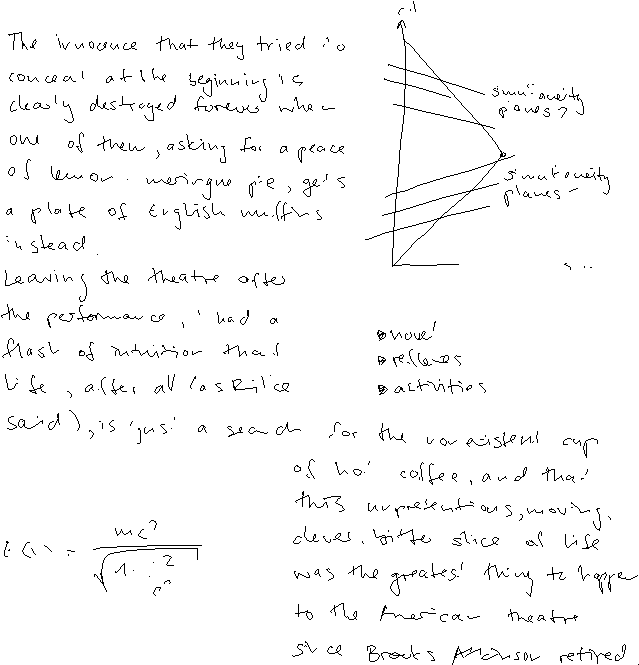 The innocence that they tried to
conceal at the beginning is
clearly destroyed forever when
one of them, asking for a peace
of lemon meringue pie, gets
a plate of English muffins
instead.
Leaving the theatre after
the performance, i had a
flash of intuition that
life, after all (as Rilke
said), is just a search for the nonexistent cup
of hot coffee, and that
this unpretentious, moving,
clever, bitter slice of life
was the greatest thing to happen
to the American theatre
since Brooks Atkinson retired
simultaneity
planes
simultaneity
planes
novel
reflexes
activities
mc²